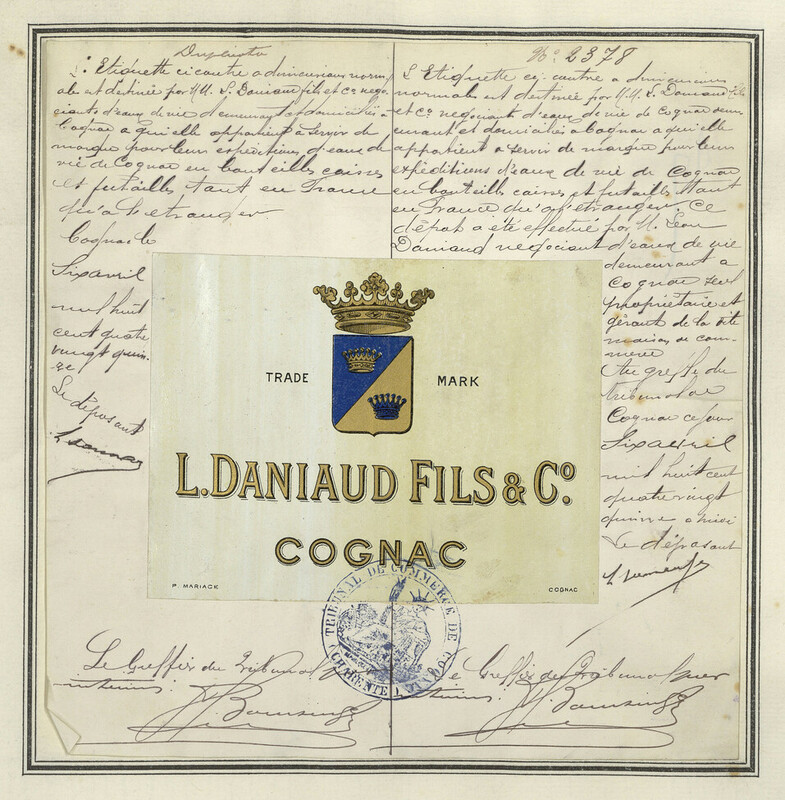 Duplicata
L'Etiquette ci contre a dimensions norm
ales est destinée par M.M. L. Daniaud fils et Co négo
ciants d'eaux de vie demeurant et domiciliés à
Cognac a qui elle appartient à servir de
marque pour leurs expéditions d'eaux de
vie de Cognac en bouteilles caisses
et futailles tant en France
qu'a l'etranger.
Cognac le
Six avril
mil huit
cent quatre
vingt quin-
ze
Le déposant
No 2378
L'Etiquette ci-contre a dimensions
normales est destinée par M.M. L. Daniaud fils
et Co négociants d'eaux de vie de Cognac demeu
rant et domiciliés a Cognac a qui elle
appartient a servir de marque pour leurs
expéditions d'eaux de vie de Cognac
en bouteilles caisses et futailles tant
en France qu'a l'étranger. Ce
dépôt a été effectué par M. Léon
Daniaud négociant d'eaux de vie
demeurant a
Cognac seul
propriétaire et
gérant de la dite
maison de com-
merce
Au greffe du
tribunal de
Cognac ce jour
Six avril
mil huit cent
quatre vingt
quinze a midi
Le déposant
TRADE MARK
L. DANIAUD FILS & Co.
COGNAC
P. MARIAGE COGNAC
TRIBUNAL DE COMMERCE DE COGNAC
(CHARENTE)
Le Greffier du Tribunal
Le Greffier du Tribunal